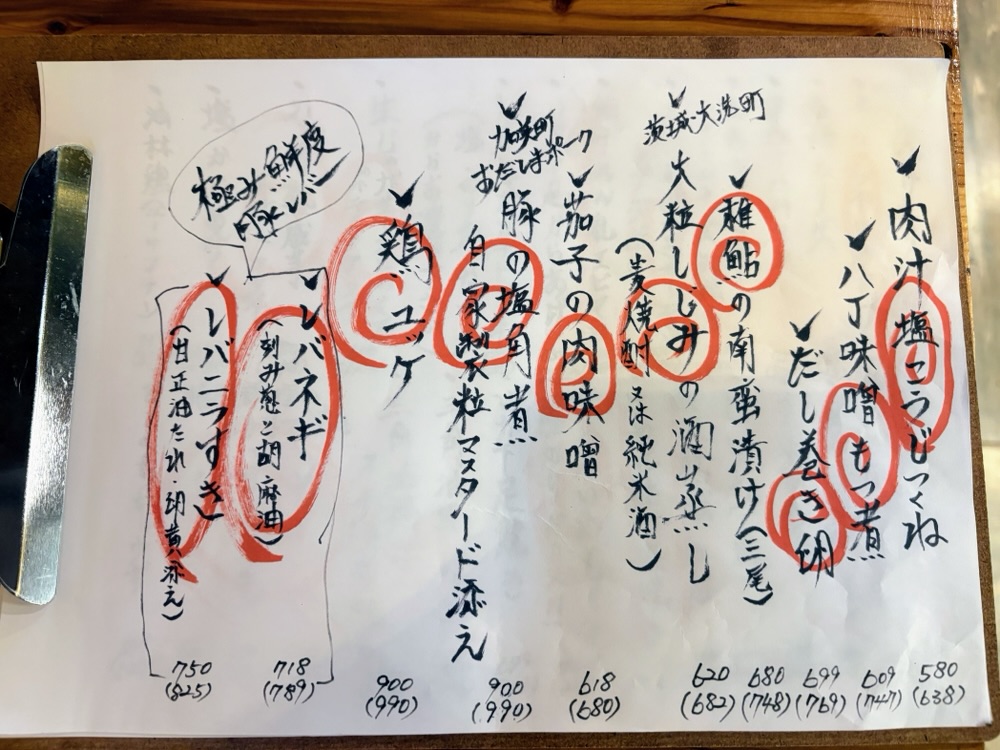 肉汁塩こうじつくね
580
(638)
八丁味噌もつ煮
679
(747)
だし巻き卵
699
(769)
稚鮎の南蛮漬け(三尾)
680
(748)
茨城・大洗町
大粒しじみの酒蒸し
(麦焼酎又は純米酒)
620
(682)
茄子の肉味噌
618
(680)
加美町
おだしまポーク
豚の塩角煮
自家製粒マスタード添え
900
(990)
鶏ユッケ
900
(990)
極み鮮度
豚レバ
レバネギ
(刻み葱と胡麻油)
718
(789)
レバニラすき
(甘正油たれ・卵黄添え)
750
(825)